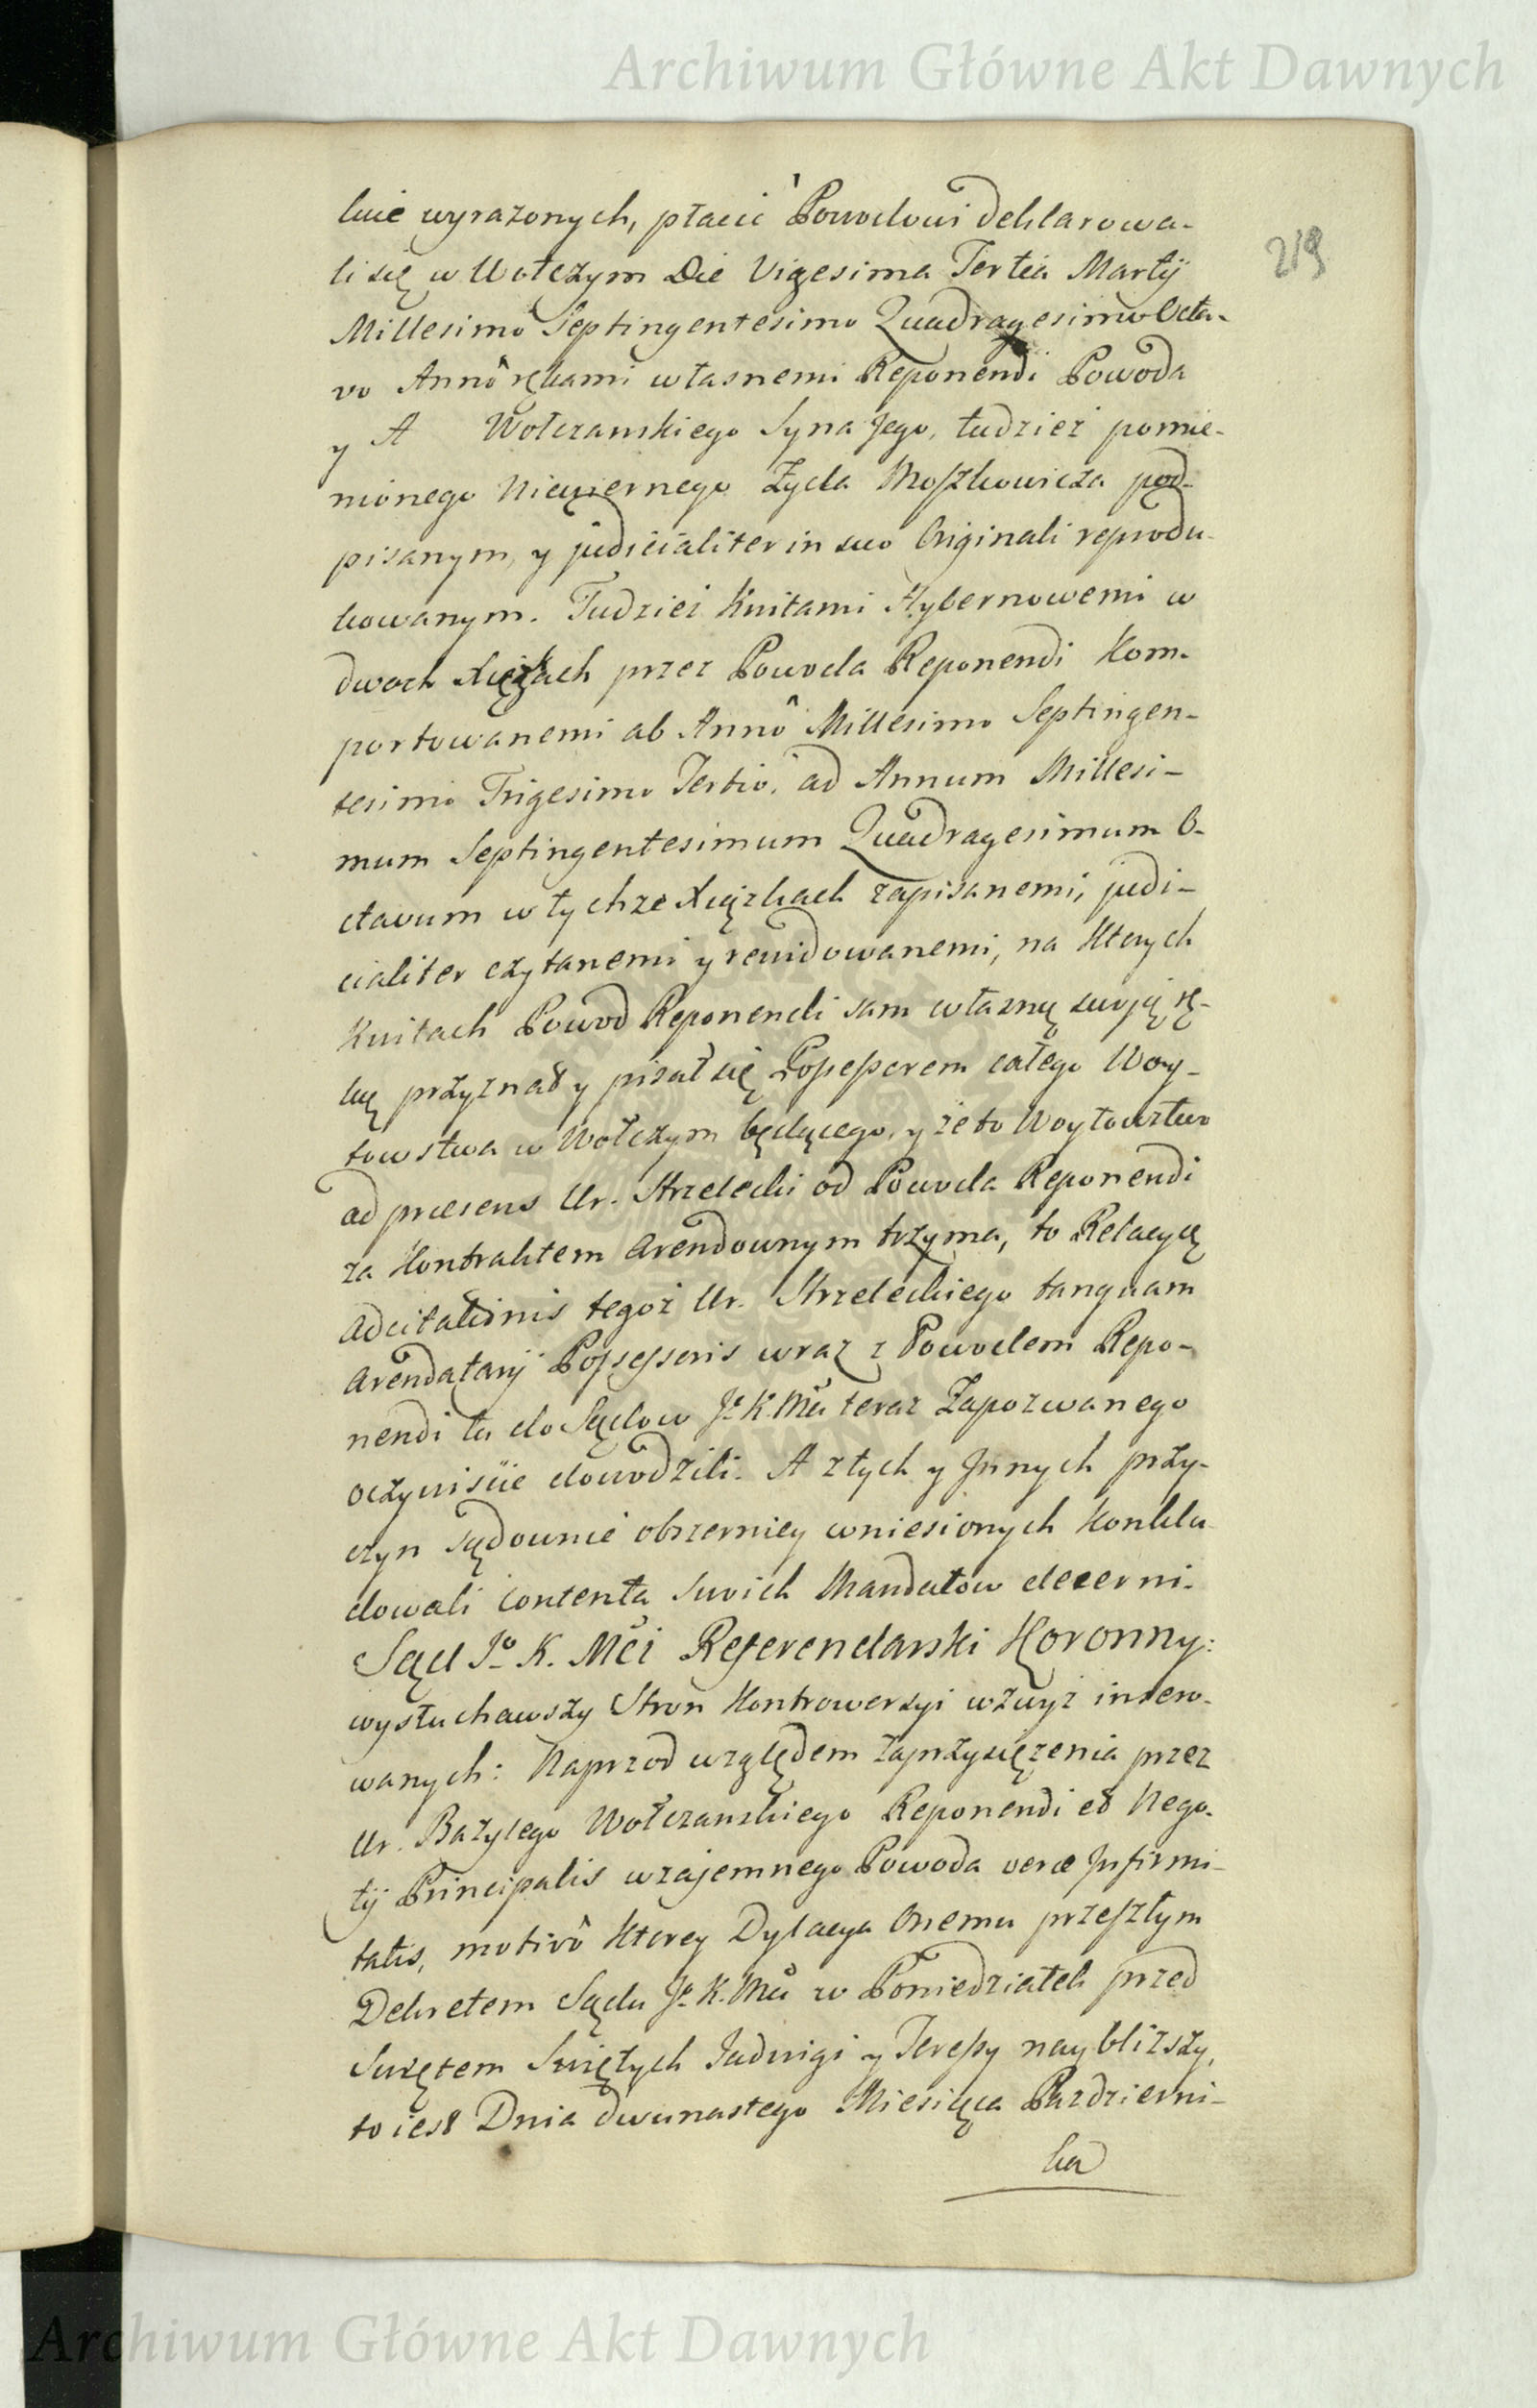 Archiwum Główne Akt Dawnych
219
lnie wyrażonych, płacić Powodowi deklarowa-
li się w Wołczym Die Vigesima Tertia Martij
Millesimo Septingentesimo Quadragesimo Octa-
vo Annô rękami własnemi Reponendi Powoda
y A Wołczanskiego Syna Jego, tudziez pomie-
nionego Niewiernego Zyda Moszkowicza pod-
pisanym, y judicialiter in suo Originali reprodu-
kowanym. Tudziez Kwitami Hybernowemi w
dwoch Xięzkach przez Powoda Reponendi Kom-
portowanemi ab Annô Millesimo Septingen-
tesimo Trigesimo Tertio, ad Annum Millesi-
mum Septingentesimum Quadragesimum O-
ctavum w tychze Xięzkach zapisanemi, judi-
cialiter czytanemi y rewidowanemi, na Ktorych
Kwitach Powod Reponendi sam własną swoją rę-
ką przyznał y pisał się Possessorem całego Woy-
towstwa w Wołczym będącego, y że to Woytowstwo
ad præsens Ur. Strzelecki od Powoda Reponendi
za Kontraktem Arendownym trzyma, to Relacyą
Adcitationis tegoż Ur. Strzeleckiego tanquam
Arendatarij Possessoris wraz z Powodem Repo-
nendi tu do Sądow Jo K. Mci teraz Zapozwanego
oczywiscie dowodzili. A z tych y Innych przy-
czyn sądownie obszerniey wniesionych Konklu-
dowali contenta swoich Mandatow decerni.
Sąd Jo K. Mci Referendarski Koronny:
wysłuchawszy Stron Kontrowersyi wzwyż insero-
wanych: Naprzod względem zaprzysiężenia przez
Ur. Bazylego Wołczanskiego Reponendi et Nego-
tij Principalis wzajemnego Powoda veræ Infirmi-
tatis, motivô Ktorey Dylacya Onemu przeszłym
Dekretem Sądu Jo K. Mci w Poniedziałek przed
Swiętem Swiętych Jadwigi y Teressy naybliższy,
to iest Dnia dwunastego Miesiąca Pazdzierni-
ka
Archiwum Główne Akt Dawnych